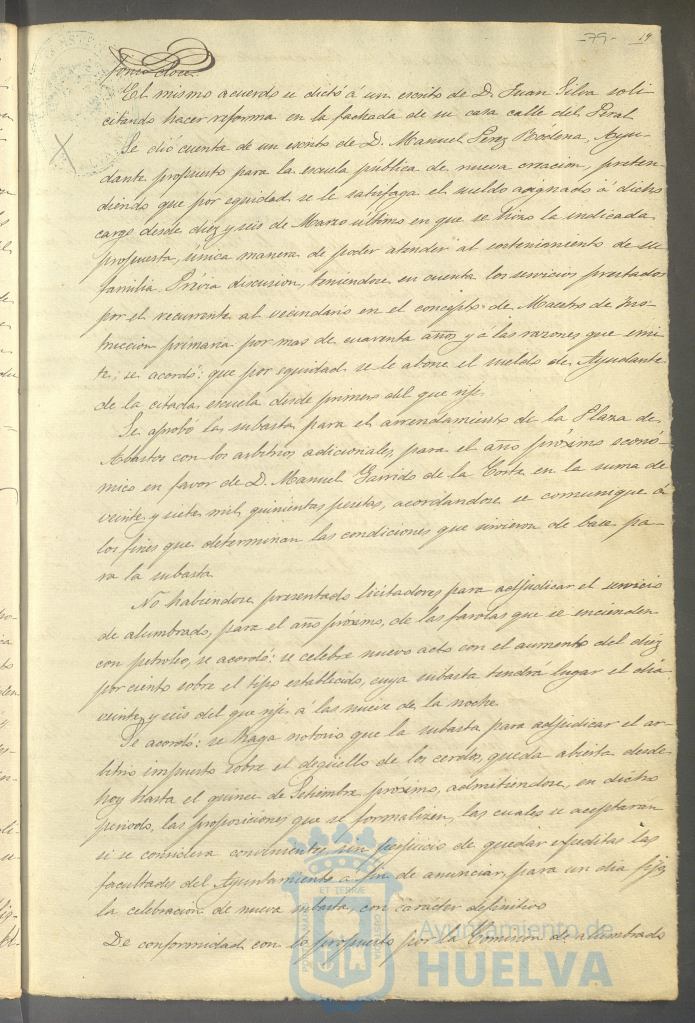 -79- 19
número doce.
El mismo acuerdo se dictó á un escrito de D. Juan Silva soli-
citando hacer reforma en la fachada de su casa calle del Peral
Se dió cuenta de un escrito de D. Manuel Perez, Ayu-
dante propuesto para la escuela pública de nueva creacion, preten-
diendo que por equidad se le satisfaga el sueldo asignado á dicho
cargo desde diez y seis de Marzo último en que se hizo la indicada
propuesta, única manera de poder atender al sostenimiento de su
familia. Prévia discusion, teniendose en cuenta los servicios prestados
por el recurrente al vecindario en el concepto de Maestro de Ins-
truccion primaria por mas de cuarenta años y á las razones que emi-
te; se acordó: que por equidad se le abone el sueldo de Ayudante
de la citada escuela desde primero del que rije.
Se aprobó la subasta para el arrendamiento de la Plaza de
Abastos con los arbitrios adicionales para el año proximo econo-
mico en favor de D. Manuel Garrido de la Corte en la suma de
veinte y siete mil quinientas pesetas, acordandose se comunique á
los fines que determinan las condiciones que sirvieron de base pa-
ra la subasta.
No habiendose presentado licitadores para adjudicar el servicio
de alumbrado, para el año próximo, de las farolas que se encienden
con petroleo, se acordó: se celebre nuevo acto con el aumento del diez
por ciento sobre el tipo establecido, cuya subasta tendrá lugar el dia
veinte y seis del que rije á las nueve de la noche.
Se acordó: se haga notorio que la subasta para adjudicar el ar-
bitrio impuesto sobre el degüello de los cerdos, queda abierta desde
hoy hasta el quince de Setiembre próximo, admitiendose, en dicho
periodo, las proposiciones que se formalizen, las cuales se aceptaran
si se considera convenientes sin perjuicio de quedar expeditas las
facultades del Ayuntamiento a fin de anunciar, para un dia fijo,
la celebracion de nueva subasta, con carácter definitivo
De conformidad con lo propuesto por la Comision de alumbrado
Ayuntamiento de
HUELVA